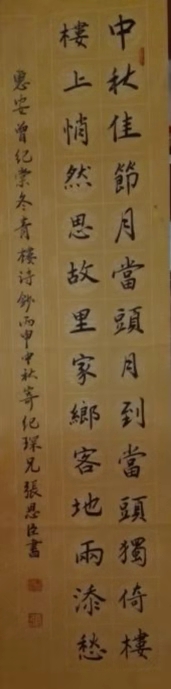 中秋佳節月當頭月到當頭獨倚樓
樓上悄然思故里家鄉客地兩添愁
惠安曾紀棠冬青樓詩鈔丙申中秋寄紀琛兄張思臣書